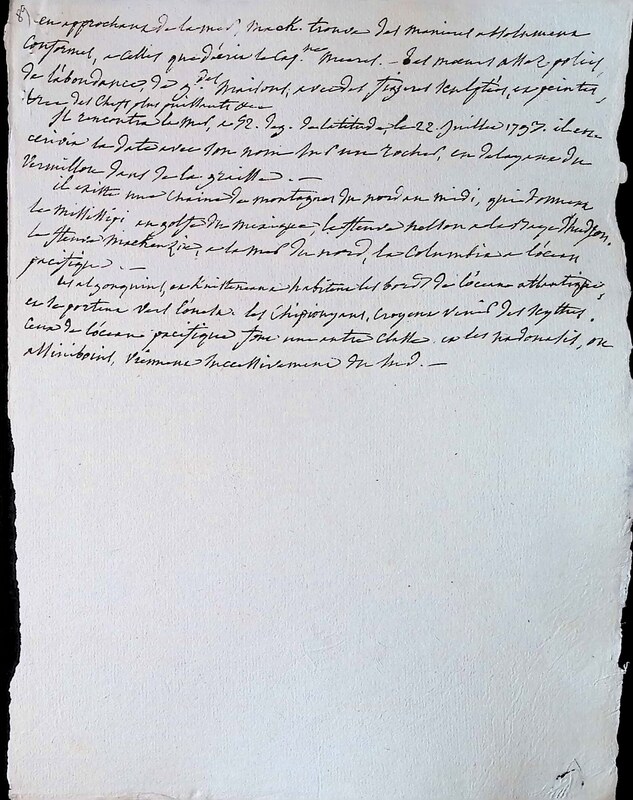 8) en approchant de la mer, Mack. trouve des manieres absolument
conformes, a celles que décrit le Cap.ne Meares. — des mœurs assez polies,
de l'abondance, de g.des maisons, avec des figures sculptées, et peintes,
des chefs plus puissants &c
Il rencontra la mer, a 52. deg. de latitude, le 22. juillet 1793. il
écrivit la date avec son nom sur une roche, en delayant du
vermillon dans de la graisse. —
il existe une chaine de montagnes du nord au midi, qui donnent
le Missisipi au golfe du mexique, le fleuve nelson a la baye d'hudson,
le fleuve mackenzie, a la mer du nord, la Columbia a l'océan
pacifique. —
les algonquins, ou Knistenaux habitent les bords de l'océan atlantique,
et se portent vers l'ouest. les Chipiouyans, croyent venir des scythes.
ceux de l'océan pacifique font une autre classe. et les nadouasis, ou
assiniboins, viennent successivement du sud. —